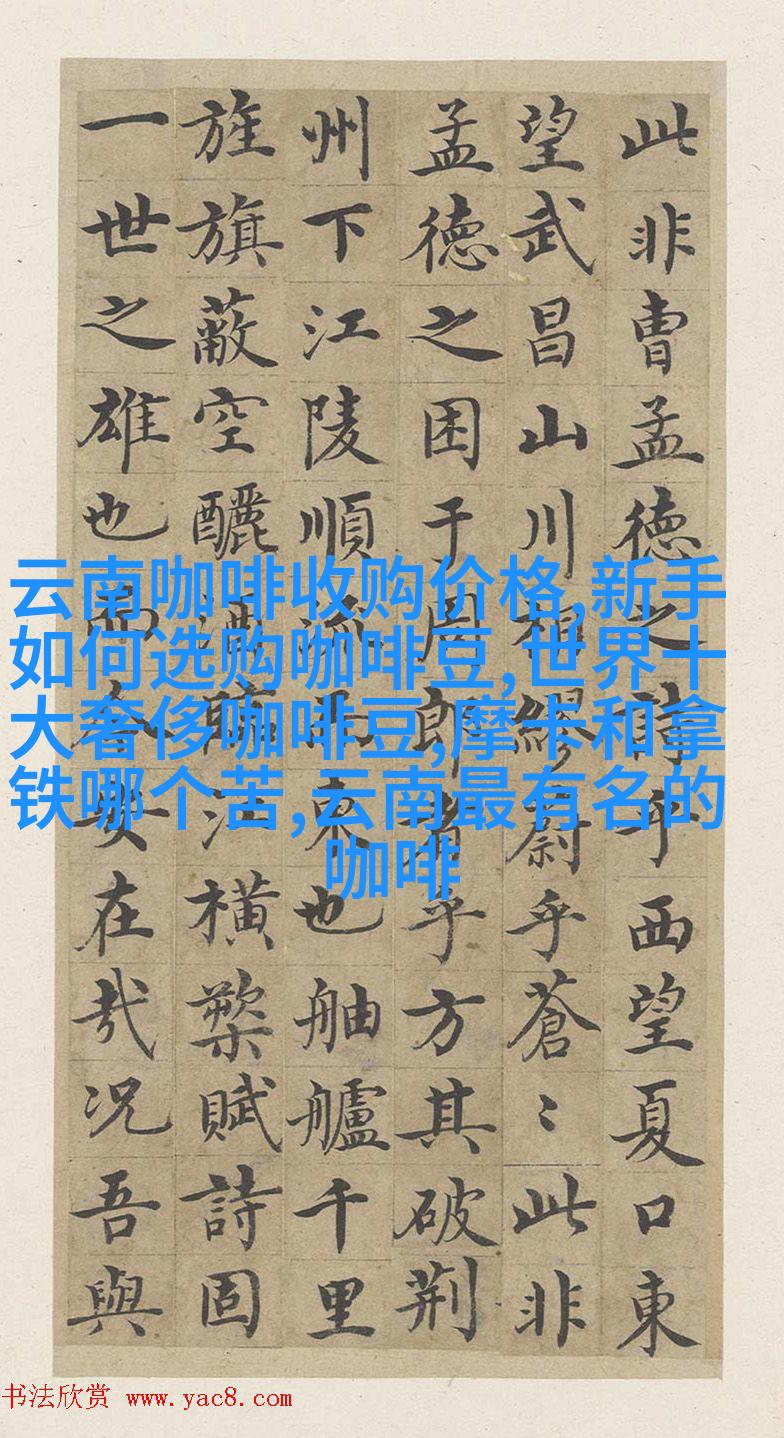 此非曹孟德之詩乎西望夏口東
望武昌山川相繆蔚乎蒼〻此非
孟德之困于周郎者乎方其破荆
州下江陵順流而東也舳艫千里
旌旗蔽空釃酒臨江橫槊賦詩固
一世之雄也而今安在哉况吾與
云南咖啡收购价格,新手
如何选购咖啡豆,世界十
大奢侈咖啡豆,摩卡和拿
铁哪个苦,云南最有名的
咖啡
书法欣赏 www.yac8.com